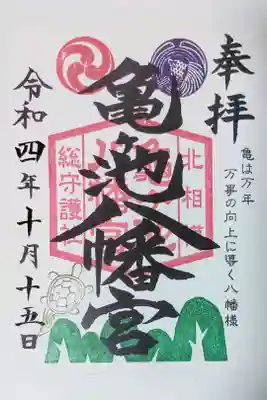 奉拝
亀は万年
万事の向上に導く八幡様
北相模
亀ヶ池八幡宮
総守護社
令和四年十月十五日